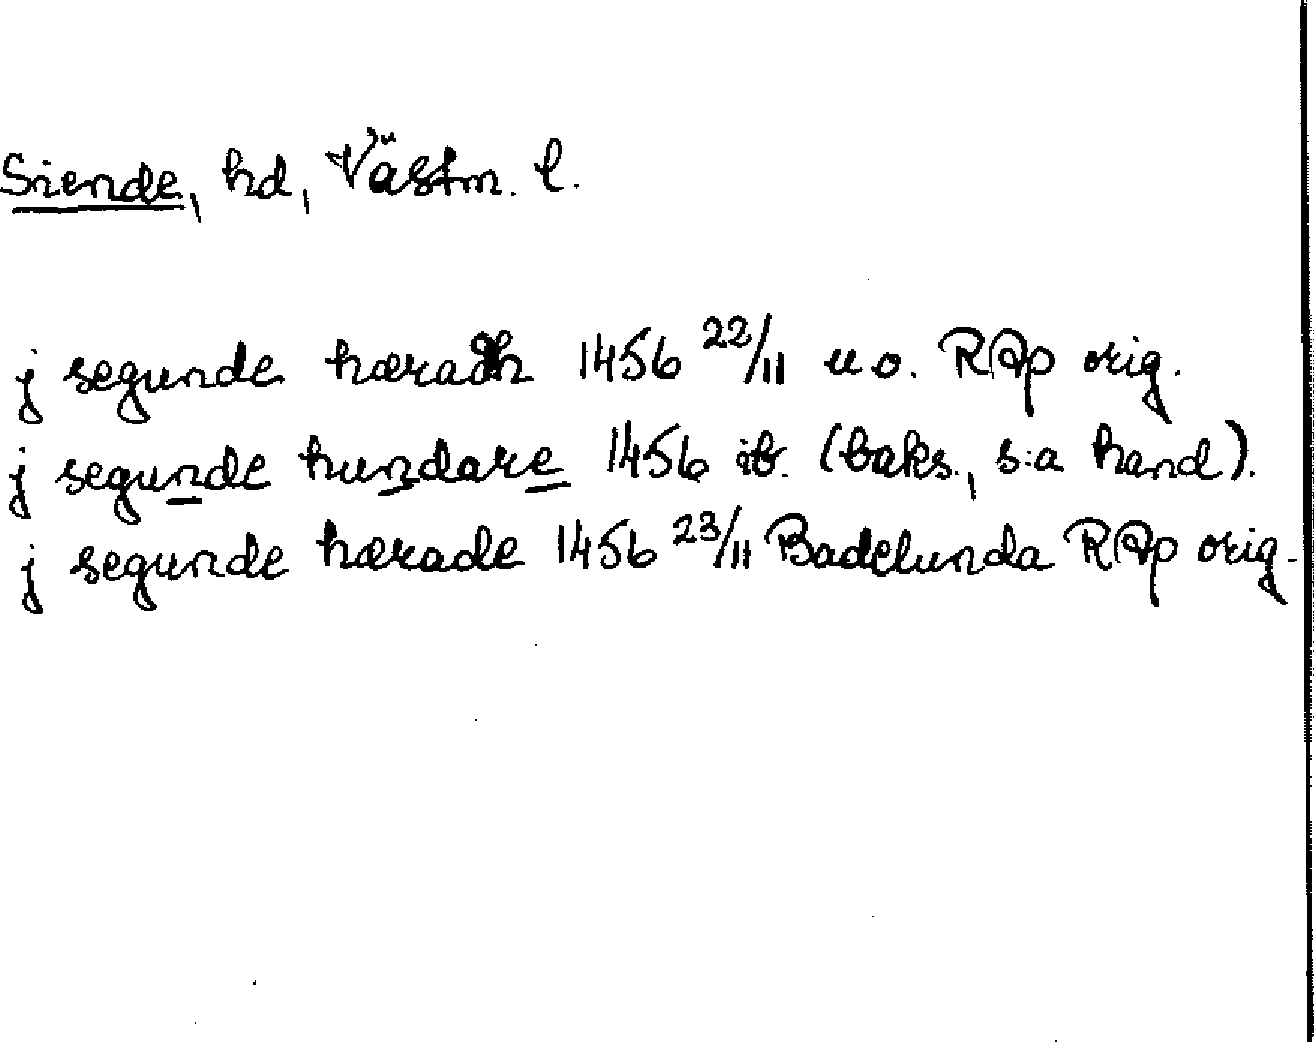 Siende, hd, Västm. l.
j segunde hæradh 1456 22/11 u.o. RAp orig.
j segunde hundare 1456 ib. (baks., s:a hand).
j segunde hærade 1456 23/11 Badelunda RAp orig.